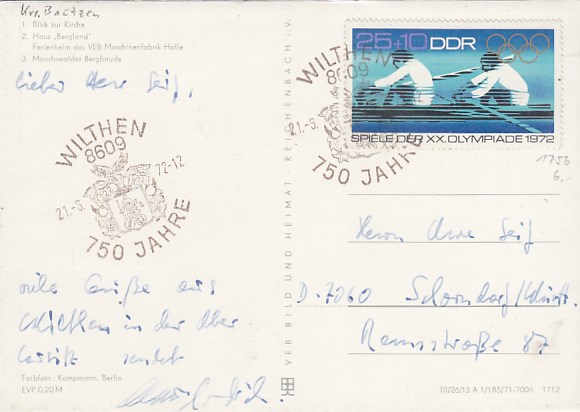 Krs. Bautzen
1. Blick zur Kirche
2. Haus „Bergland"
Ferienheim des VEB Maschinenfabrik Halle
3. Mönchswalder Bergbaude
Lieber Herr Seif,
WILTHEN
8609
21.-5. 72-12
750 JAHRE
viele Grüße aus
Wilthen in der Ober-
lausitz sendet
Farbfoto: Kampmann, Berlin
EVP 0,20 M
VEB BILD UND HEIMAT · REICHENBACH i. V.
25+10 DDR
SPIELE DER XX. OLYMPIADE 1972
WILTHEN
8609
21.-5.
750 JAHRE
1756
6,-
Herrn Uwe Seif
D-7060 Schorndorf/Württ.
Remsstraße 87
III/26/13 A 1/185/71-7006 1712